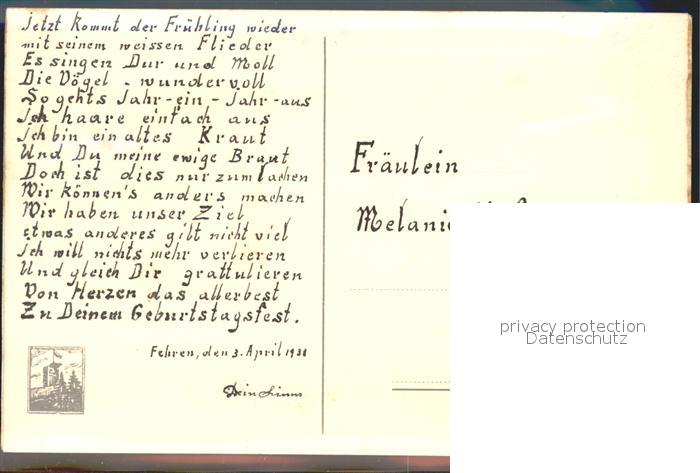 Jetzt kommt der Frühling wieder
mit seinem weissen Flieder
Es singen Dur und Moll
Die Vögel - wundervoll
So gehts Jahr-ein - Jahr-aus
Ich haare einfach aus
Ich bin ein altes Kraut
Und Du meine ewige Braut
Doch ist dies nur zum lachen
Wir können's anders machen
Wir haben unser Ziel
etwas anderes gilt nicht viel
Ich will nichts mehr verlieren
Und gleich Dir grattulieren
Von Herzen das allerbest
Zu Deinem Geburtstagsfest.
Fehren, den 3. April 1938
Dein
Fräulein
Melanie
privacy protection
Datenschutz